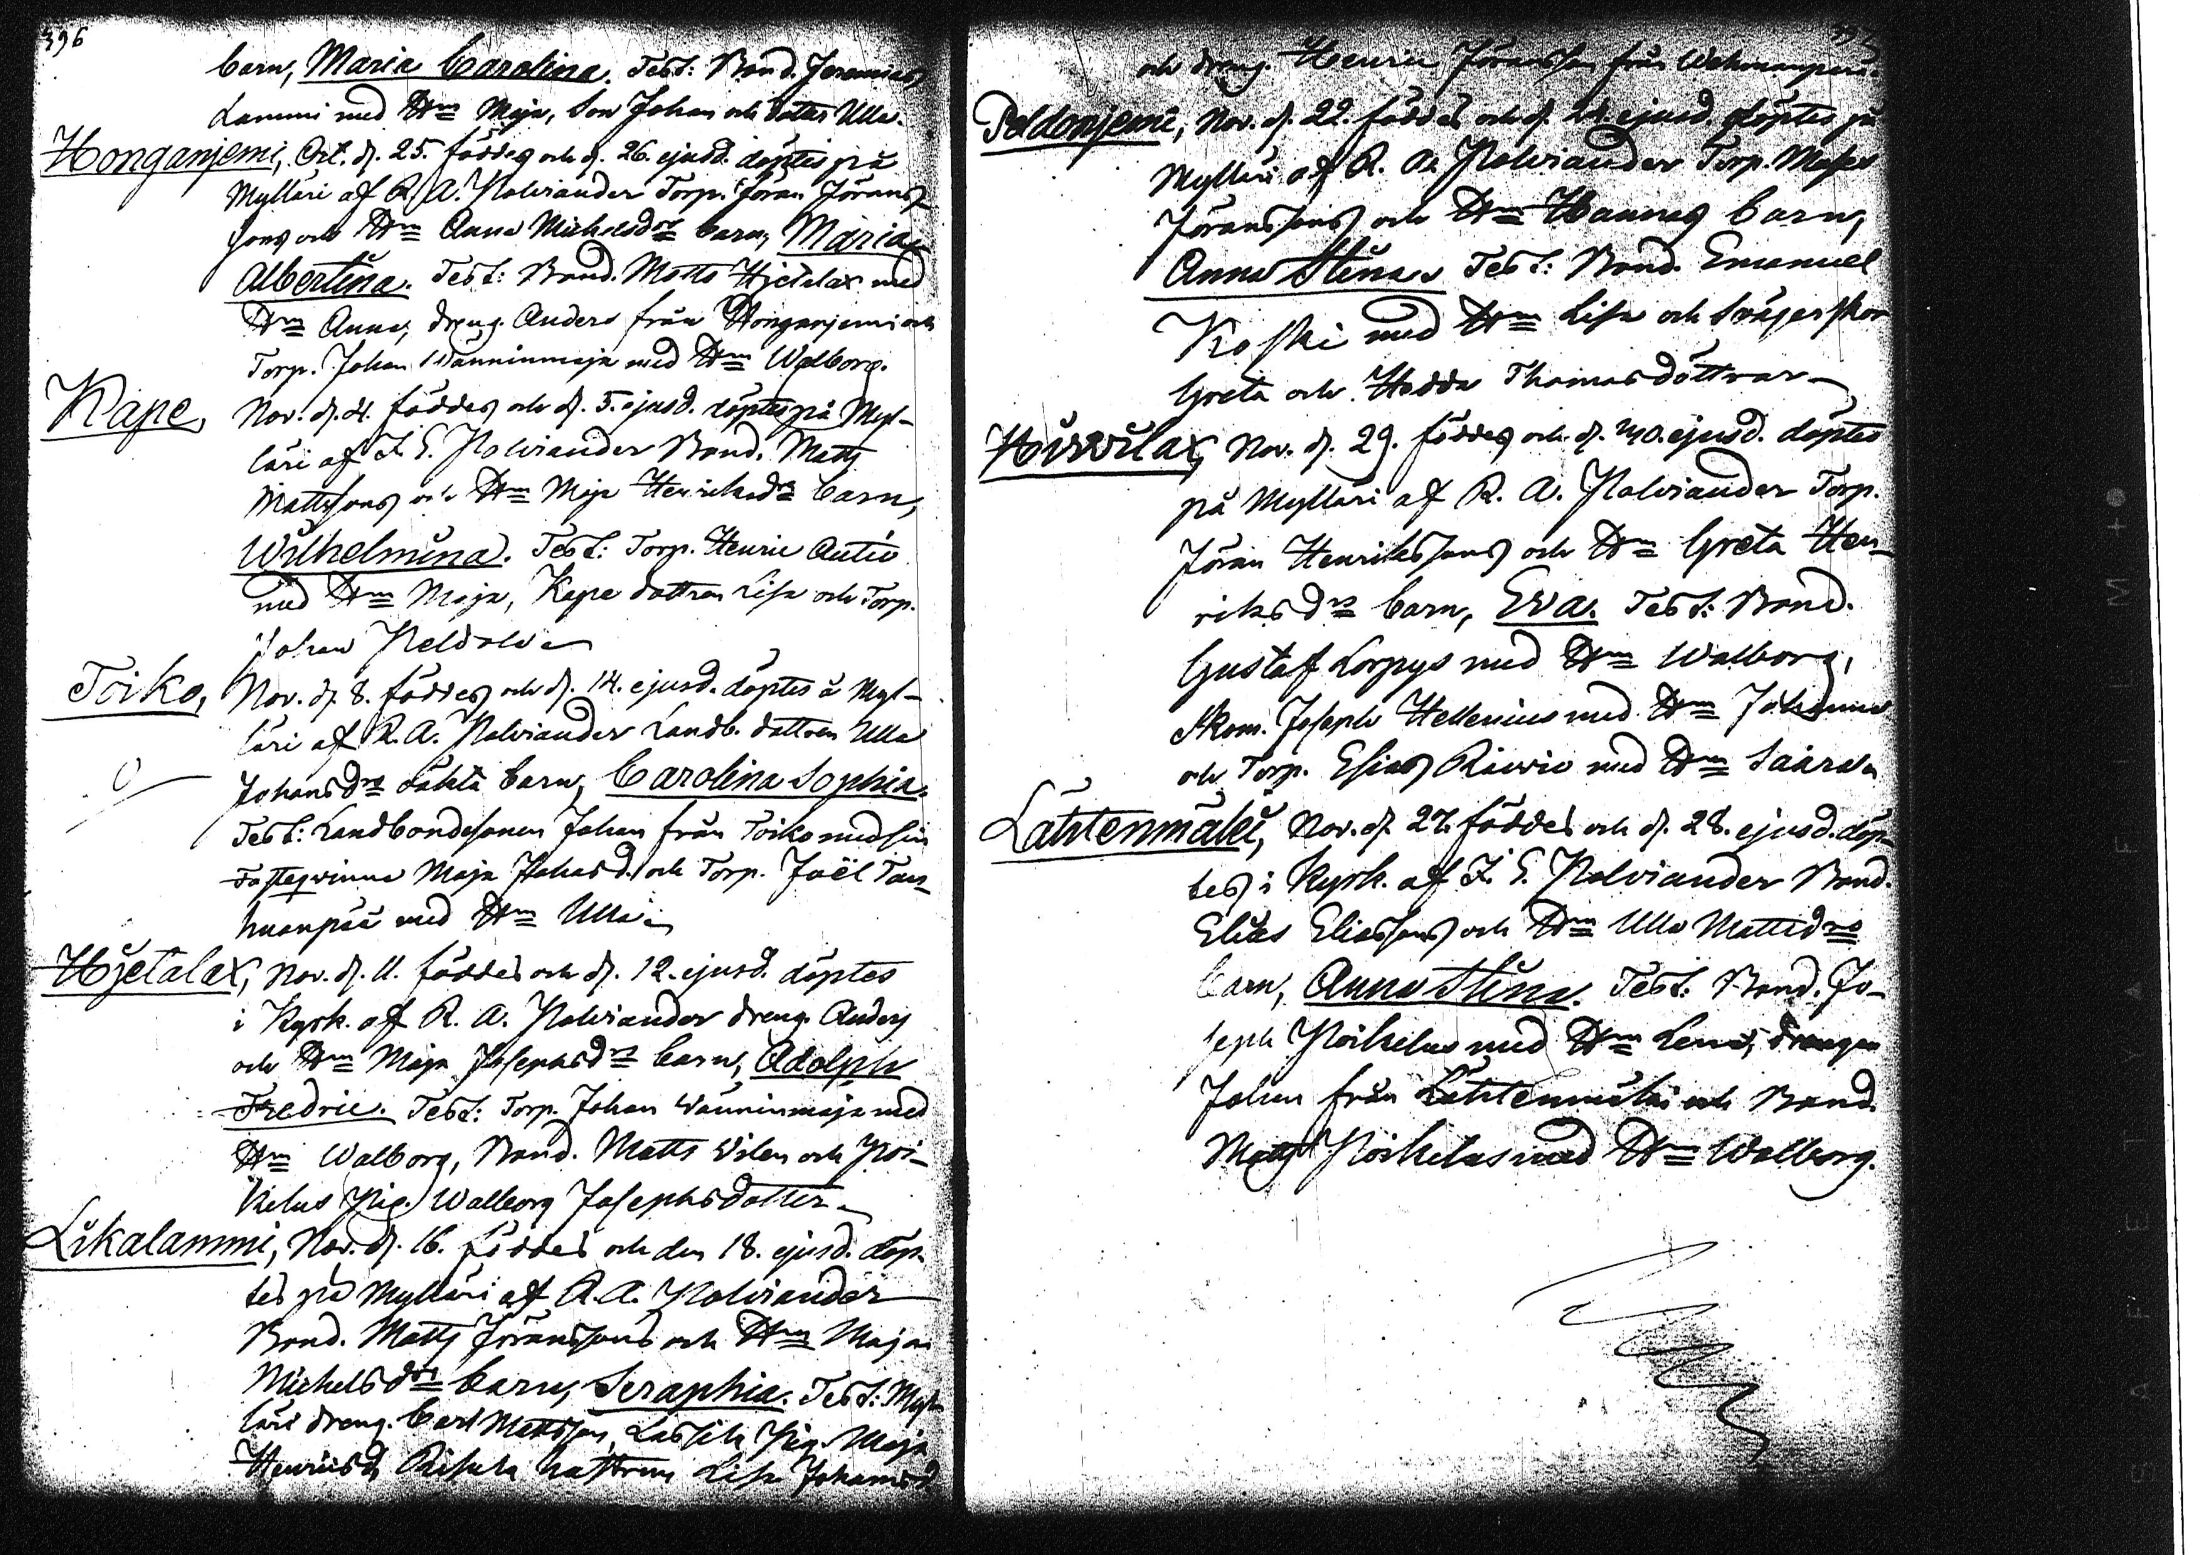 396
barn, Maria Carolina. Test: Bond. Jeremias
Lammi med H:m Maja, Son Johan och dotter Ulla.
Honganjemi, Oct. d. 25. föddes och d. 26. ejusd. döptes på
Mylläri af R. A. Polviander Torp. Jöran Jörans-
sons och H:m Anna Michelsd:r barn, Maria
Albertina. Test: Bond. Matts Hjetalax med
H:m Anna, dreng. Anders från Honganjemi och
Torp. Johan Wänninmaja med H:m Walborg.
Kape, Nov. d. 4. föddes och d. 5. ejusd. döptes på Myl-
läri af J. E. Polviander Bond. Matts
Mattssons och H:m Maja Henriksd:r barn,
Wilhelmina. Test: Torp. Henric Autio
med H:m Maja, Kape dottren Lisa och Torp.
Johan Peldola
Toiko, Nov. d. 8. föddes och d. 14. ejusd. döptes å Myl-
läri af R. A. Polviander Landb. dottren Ulla
Johansd:rs oäkta barn, Carolina Sophia.
Test: Landbondesonen Johan från Toiko med sin
Fästeqvinna Maja Johansd. och Torp. Joël Tan-
huanpää med H:m Ulla
Hjetalax, Nov. d. 11. föddes och d. 12. ejusd. döptes
i Kyrk. af R. A. Polviander dreng. Anders
och H:m Maja Josephsd:r barn, Adolph
Fredric. Test: Torp. Johan Wänninmaja med
H:m Walborg, Bond. Matts Wilen och Poi-
kelus Pig. Walborg Josephsdotter
Likalammi, Nov. d. 16. föddes och den 18. ejusd. döp-
tes på Mylläri af R. A. Polviander
Bond. Matts Jöranssons och H:m Maja
Michelsd:rs barn, Seraphia. Test: Myl-
läri dreng. Carl Mattsson, Lassila Pig. Maja
Henricsd. Lisa Johansd.
och dreng. Henric Jöransson från
Peldonjemi, Nov. d. 22. föddes och d. 24. ejusd. döptes på
Mylläri af R. A. Polviander Torp. Moses
Jöranssons och H:m Hannas barn,
Anna Stina. Test: Bond. Emanuel
Koski med H:m Lisa och Svägerskor
Greta och Hedda Thomasdöttrar
Hirvilax, Nov. d. 29. föddes och d. 30. ejusd. döptes
på Mylläri af R. A. Polviander Torp.
Jöran Henrikssons och H:m Greta Hen-
riksd:rs barn, Eva. Test: Bond.
Gustaf Lorpys med H:m Walborg,
Skom. Joseph Hellenius med H:m Johanna
och Torp. Esias Räivio med H:m Saara
Lähtenmäki, Nov. d. 27. föddes och d. 28. ejusd. döp-
tes i Kyrk. af J. E. Polviander Bond.
Elias Eliassons och H:m Ulla Mattsd:rs
barn, Anna Stina. Test: Bond. Jo-
seph Poikelus med H:m Lena, drengen
Johan från Lähtenmäki och Bond.
Matts Poikelus med H:m Walborg.
SAFETY FILM